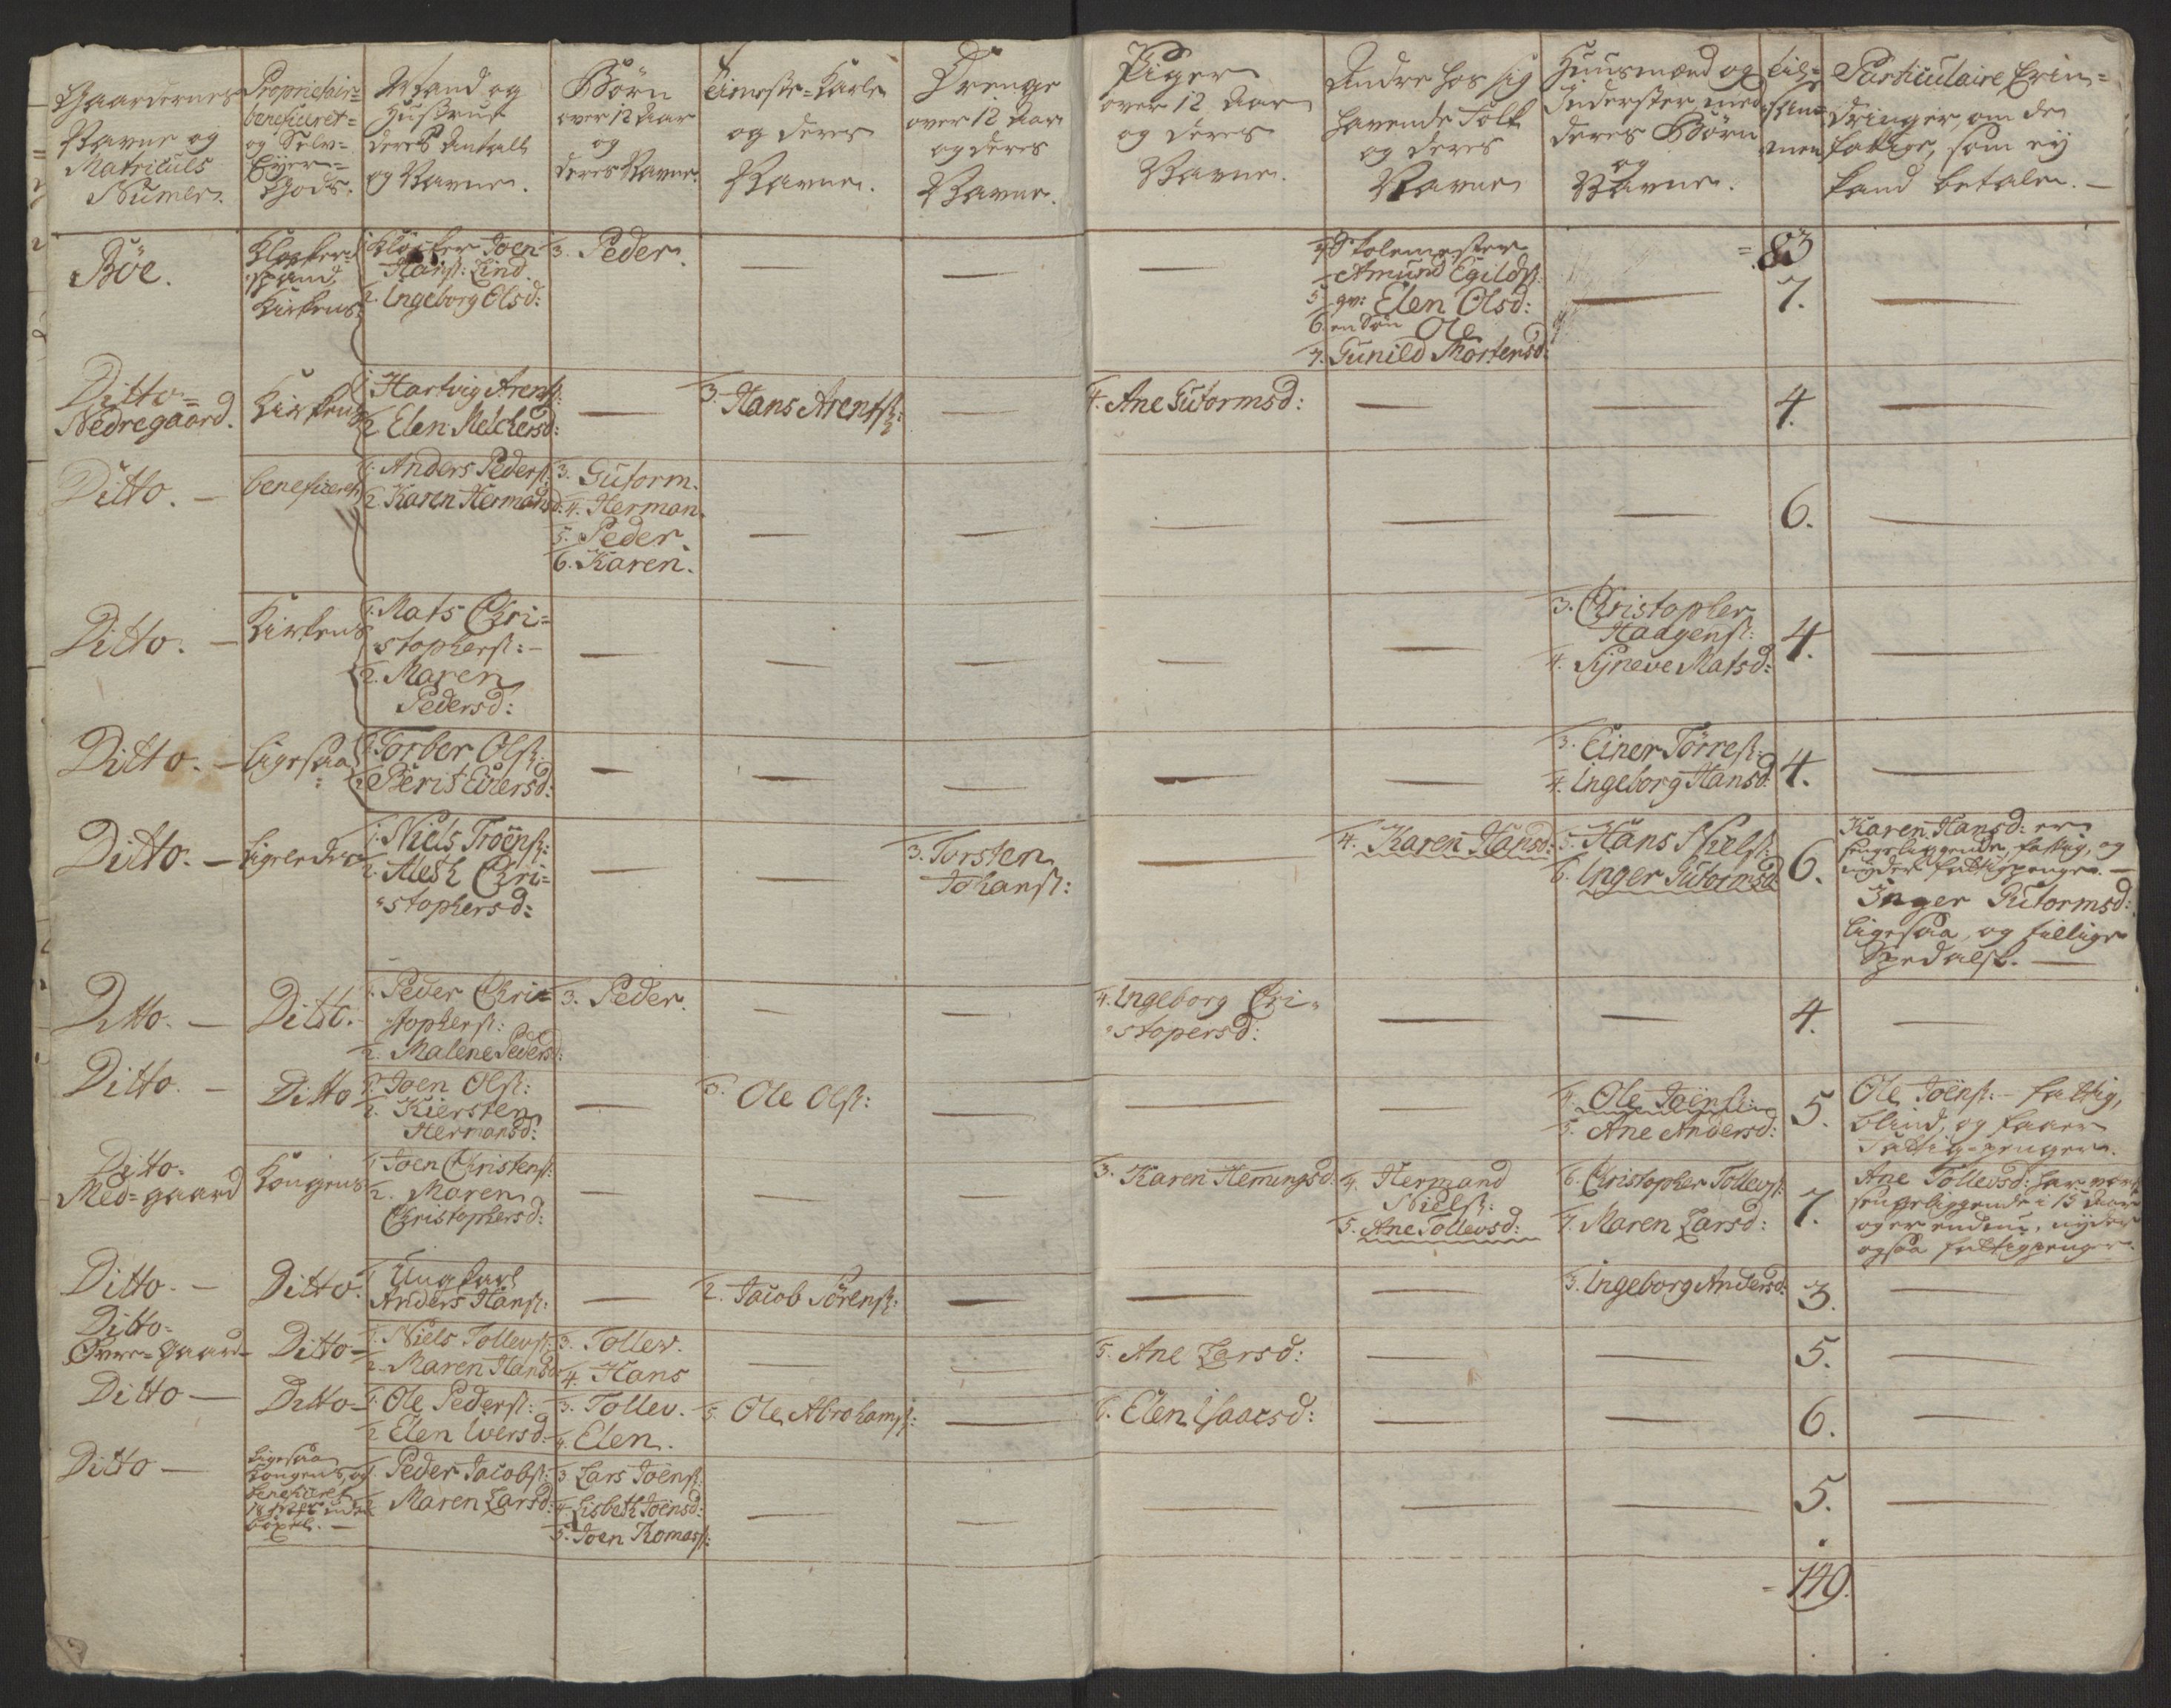 Gaardernes
Navne og
Matriculs
Numer.
Proprietair=
beneficeret=
og Selv=
Eyer=
Gods.
Mand og
Hustrue
deres Antall
og Navne.
Børn
over 12 Aar
og
deres Navne.
Tieneste=Karle
og deres
Navne.
Drenge
over 12 Aar
og deres
Navne.
Piger
over 12 Aar
og deres
Navne.
Andre hos sig
havende Folk
og deres
Navne
Huusmænd og
Inderster med
deres Børn
og
Navne.
Til=
sam=
men
Particulaire Erin=
dringer, om de
fattige, som ej
kand betale. —
= 83
Böe.
Klokker=
Kirkens
1. Klokker Joen
Hanß: Lind
2. Ingeborg Olsd:
3. Peder.
4. Skolemester
Amund Egildß:
5. qv: Elen Olsd:
6. en Søn Ole
7. Gunild Mortensd:
7.
Ditto=
Nedregaard.
Kirkens
1. Hartvig Arentß:
2. Elen Melchersd:
3. Hans Arentß:
4. Ane Gutormsd:
4.
Ditto. —
beneficeret
1. Anders Pederß:
2. Karen Hermansd:
3. Gutorm.
4. Herman.
5. Peder.
6. Karen.
6.
Ditto. —
Kirkens
1. Mats Chri=
stopherß: —
2. Maren
Pedersd:
3. Christopher
Haagenß:
4. Sÿneve Matsd:
4.
Ditto. —
Ligesaa
1. Torber Olß:
2. Berit Einersd:
3. Einer Törreß:
4. Ingeborg Hansd:
4.
Ditto. —
1. Niels Troenß:
2. Aleth Chri=
stophersd:
3. Torsten
Johanß:
4. Karen Hansd:
5. Hans
6. Inger Gutormsd:
6.
Karen Hansd: er
sengeliggende, fattig, og
nyder fattigpenge. —
Inger Gutormsd:
ligesaa, og tillige
Spedalsk. —
Ditto. —
Ditto.
1. Peder Chri=
stopherß:
2. Malene Pedersd:
3. Peder.
4. Ingeborg Chri=
stopersd:
4.
Ditto. —
Ditto
1. Joen Olß:
2. Kiersten
Hermansd:
3. Ole Olß:
4. Ole Joenß:
5. Ane Andersd:
5.
Ole Joenß: — fattig,
blind, og faaer
Fattig=penger.
Ditto.
Med=gaard
Kongens
1. Joen Christenß:
2. Maren
Christophersd:
3. Karen Hemingsd:
4. Hermand
Nielß:
5. Ane Tollevsd:
6. Christopher Tollevß:
7. Maren Larsd:
7.
Ane Tollevsd: har vært
sengeliggende i 15 Aar
og er endnu, nyder
ogsaa fattigpenge.
Ditto. —
Ditto.
1. Ungkarl
Anders Hanß:
2. Jacob Sörenß:
3. Ingeborg Andersd:
3.
Ditto=
Øvre=Gaard
Ditto
1. Niels Tollevß:
2. Maren Hansd:
3. Tollev.
4. Hans
5. Ane Larsd:
5.
Ditto —
Ditto
1. Ole Pederß:
2. Elen Iversd:
3. Tollev.
4. Elen.
5. Ole Abrahamß:
6. Elen Isaacsd:
6.
Ditto —
Ligesaa
Kongens, og
beneficeret
1. Peder Jacobß:
2. Maren Larsd:
3. Lars Joenß:
4. Lisbeth Joensd:
5. Joen Tomasß:
5.
= 149.